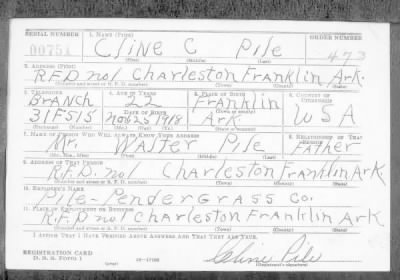 SERIAL NUMBER 1. NAME (Print) ORDER NUMBER
00751 Cline C Pile 473
(First) (Middle) (Last)
2. ADDRESS (Print)
R.F.D. no1 Charleston Franklin Ark.
(Number and street or R. F. D. number) (Town) (County) (State)
3. TELEPHONE 4. AGE IN YEARS 5. PLACE OF BIRTH 6. COUNTRY OF CITIZENSHIP
Branch 22 Franklin
DATE OF BIRTH (Town or county)
31F515 nov 25 1918 Ark USA
(Mo.) (Day) (Yr.) (State or country)
7. NAME OF PERSON WHO WILL ALWAYS KNOW YOUR ADDRESS 8. RELATIONSHIP OF THAT PERSON
Mr. Walter Pile Father
(Mr., Mrs., Miss) (First) (Middle) (Last)
9. ADDRESS OF THAT PERSON
R.F.D. no1 Charleston Franklin Ark.
(Number and street or R. F. D. number) (Town) (County) (State)
10. EMPLOYER'S NAME
Pile-Pendergrass Co.
11. PLACE OF EMPLOYMENT OR BUSINESS
R.F.D no1 Charleston Franklin Ark
(Number and street or R. F. D. number) (Town) (County) (State)
I AFFIRM THAT I HAVE VERIFIED ABOVE ANSWERS AND THAT THEY ARE TRUE.
REGISTRATION CARD
D. S. S. Form 1 (over) Cline Pile
(Registrant's signature)